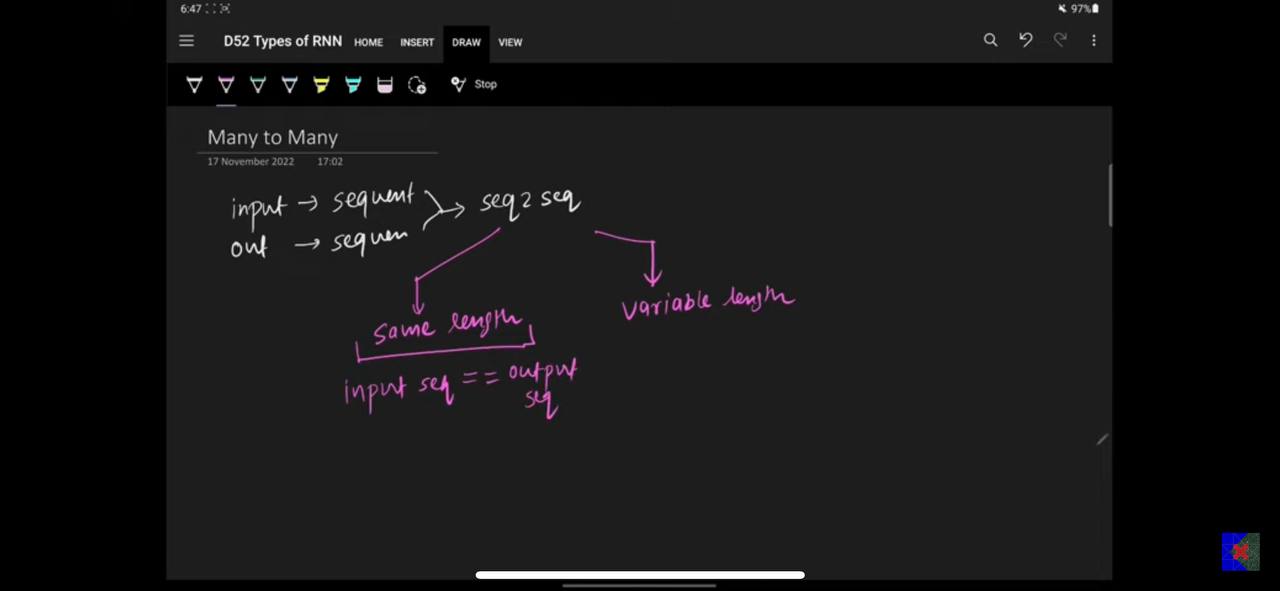 6:47 97%
D52 Types of RNN HOME INSERT DRAW VIEW
Stop
Many to Many
17 November 2022 17:02
input → sequent
out → sequen
→ seq2seq
same length
variable length
input seq == output
seq